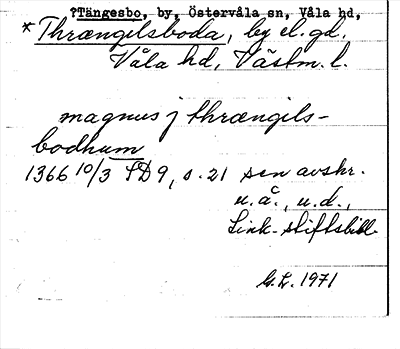 ?Tängesbo, by, Östervåla sn, Våla hd,
*Thrængilsboda, by el. gd.
Våla hd, Västm. l.
magnus j thrængils-
bodhum
1366 10/3 SD 9, s. 21 sen avskr.
u.å., u.d.,
Link. stiftsbibl.
G.L. 1971